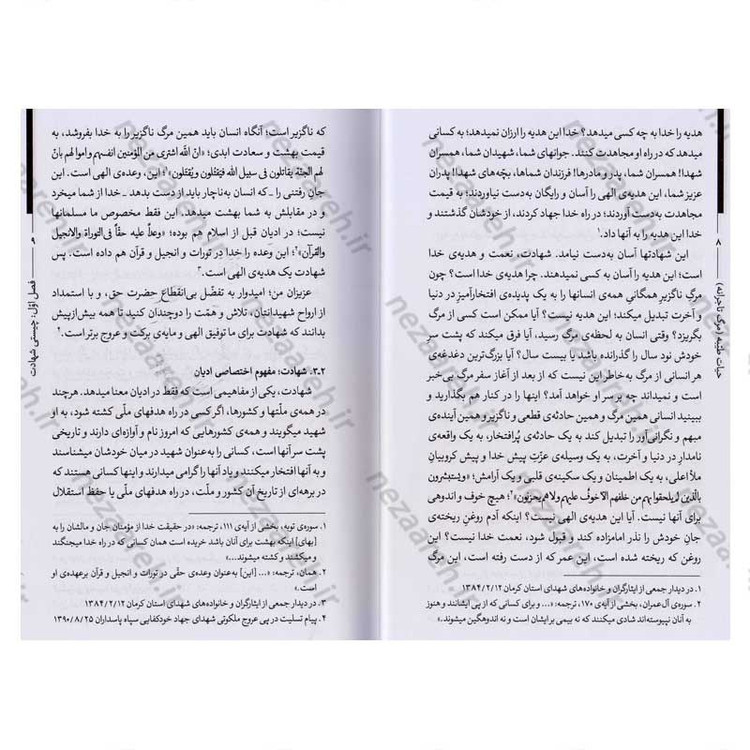 هدیه را خدا به چه کسی میدهد؟ خدا این هدیه را ارزان نمیدهد؛ به کسانی
میدهد که در راه او مجاهدت کنند. جوانهای شما، شهیدان شما، همسران
شهدا! همسران شما، پدر و مادرها! فرزندان شماها، بچّه‌های شهدا! پدران
عزیز شما، این هدیه‌ی الهی را آسان و رایگان به‌دست نیاوردند؛ به قیمت
مجاهدت به‌دست آوردند؛ در راه خدا جهاد کردند، از خودشان گذشتند و
خدا این هدیه را به آنها داد.۱
این شهادتها آسان به‌دست نیامد. شهادت، نعمت و هدیه‌ی خدا
است؛ این هدیه را آسان به کسی نمیدهند. چرا هدیه‌ی خدا است؟ چون
مرگِ ناگزیرِ همگانیِ همه‌ی انسانها را به یک پدیده‌ی افتخارآمیز در دنیا
و آخرت تبدیل میکند؛ این هدیه نیست؟ آیا ممکن است کسی از مرگ
بگریزد؟ وقتی انسان به لحظه‌ی مرگ رسید، آیا فرق میکند که پشت سرِ
خودش نود سال را گذرانده باشد یا بیست سال؟ آیا بزرگ‌ترین دغدغه‌ی
هر انسانی از مرگ به‌خاطر این نیست که از بعد از آغاز سفر مرگ بی‌خبر
است و نمیداند چه بر سر او خواهد آمد؟ اینها را در کنار هم بگذارید و
ببینید انسانی همین مرگ و همین حادثه‌ی قطعی و ناگزیر و همین آینده‌ی
مبهم و نگرانی‌آور را تبدیل کند به یک حادثه‌ی پُرافتخار، به یک واقعه‌ی
نامدار در دنیا و آخرت، به یک وسیله‌ی عزّت پیش خدا و پیش کروبیان
ملأ اعلی، به یک اطمینان و یک سکینه‌ی قلبی و یک آرامش؛ «ویستبشرون
بالّذین لم‌یلحقوا بهم من خلفهم الّا خوف علیهم ولا هم یحزنون»۲؛ هیچ خوف و اندوهی
برای آنها نیست. آیا این هدیه‌ی الهی نیست؟ اینکه آدم روغنِ ریخته‌ی
جانِ خودش را نذر امامزاده کند و قبول شود، نعمت خدا نیست؟ این
روغن که ریخته شده است، این عمر که از دست رفته است، این مرگ
۱. در دیدار جمعی از ایثارگران و خانواده‌های شهدای استان کرمان ۱۳۸۴/۲/۱۲
۲. سوره‌ی آل‌عمران، بخشی از آیه‌ی ۱۷۰، ترجمه: «... و برای کسانی که از پی ایشانند و هنوز
به آنان نپیوسته‌اند شادی میکنند که نه بیمی بر ایشان است و نه اندوهگین میشوند.»
۸
حیات طیّبه (مرگ تاجرانه)
که ناگزیر است؛ آنگاه انسان باید همین مرگ ناگزیر را به خدا بفروشد، به
قیمت بهشت و سعادت ابدی؛ «انّ الله اشتری من المؤمنین انفسهم و اموالهم بانّ
لهم الجنّة یقاتلون فی سبیل الله فیَقتُلون و یُقتَلون»۱؛ این، وعده‌ی الهی است. این
جانِ رفتنی را ـ که انسان به‌ناچار باید از دست بدهد ـ خدا از شما میخرد
و در مقابلش به شما بهشت میدهد. این فقط مخصوص ما مسلمانها
نیست؛ در ادیان قبل از اسلام هم بوده؛ «وعداً علیه حقّاً فی التوراة والانجیل
والقرآن»۲؛ این وعده را خدا در تورات و انجیل و قرآن هم داده است. پس
شهادت یک هدیه‌ی الهی است.۳
عزیزان من؛ امیدوار به تفضّل بی‌انقطاعِ حضرت حق، و با استمداد
از ارواح شهیدانتان، تلاش و همّت را دوچندان کنید تا همه بیش‌از‌پیش
بدانند که شهادت برای ما توفیق الهی و مایه‌ی برکت و عروج برتر است.۴
۲.۳. شهادت؛ مفهوم اختصاصی ادیان
شهادت، یکی از مفاهیمی است که فقط در ادیان معنا میدهد. هرچند
در همه‌ی ملّتها و کشورها، اگر کسی در راه هدفهای ملّی کشته شود، به او
شهید میگویند و همه‌ی کشورهایی که امروز نام و آوازه‌ای دارند و تاریخی
پشت سر آنها است، کسانی را به‌عنوان شهید در میان خودشان میشناسند
و به آنها افتخار میکنند و یاد آنها را گرامی میدارند و اینها کسانی هستند که
در برهه‌ای از تاریخ آن کشور و ملّت، در راه هدفهای ملّی یا حفظ استقلال
۱. سوره‌ی توبه، بخشی از آیه‌ی ۱۱۱، ترجمه: «در حقیقت خدا از مؤمنان جان و مالشان را به
[بهای] اینکه بهشت برای آنان باشد خریده است همان کسانی که در راه خدا میجنگند
و میکشند و کشته میشوند...»
۲. همان، ترجمه: «... [این] به‌عنوان وعده‌ی حقّی در تورات و انجیل و قرآن برعهده‌ی او
است.»
۳. در دیدار جمعی از ایثارگران و خانواده‌های شهدای استان کرمان ۱۳۸۴/۲/۱۲
۴. پیام تسلیت در پی عروج ملکوتی شهدای جهاد خودکفایی سپاه پاسداران ۱۳۹۰/۸/۲۵
۹
فصل اوّل: چیستی شهادت
nezaareh.ir